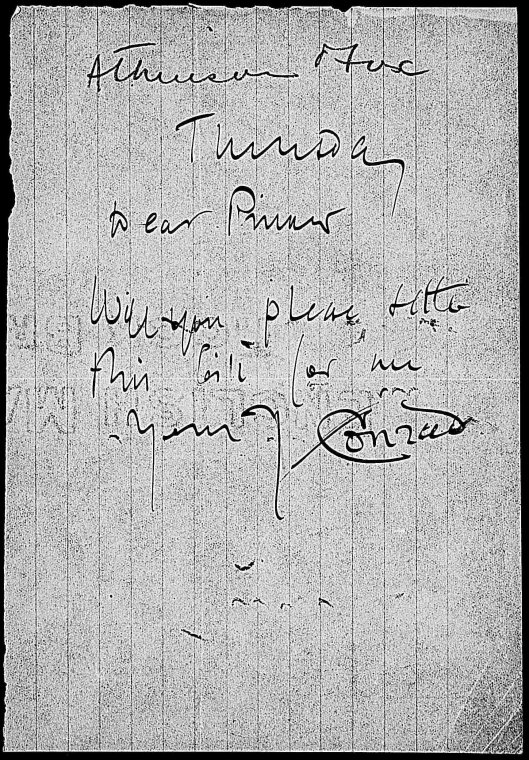 Atkinson Fox
Thursday
Dear Pinker
Will you please settle
this bill for me
Yours J. Conrad